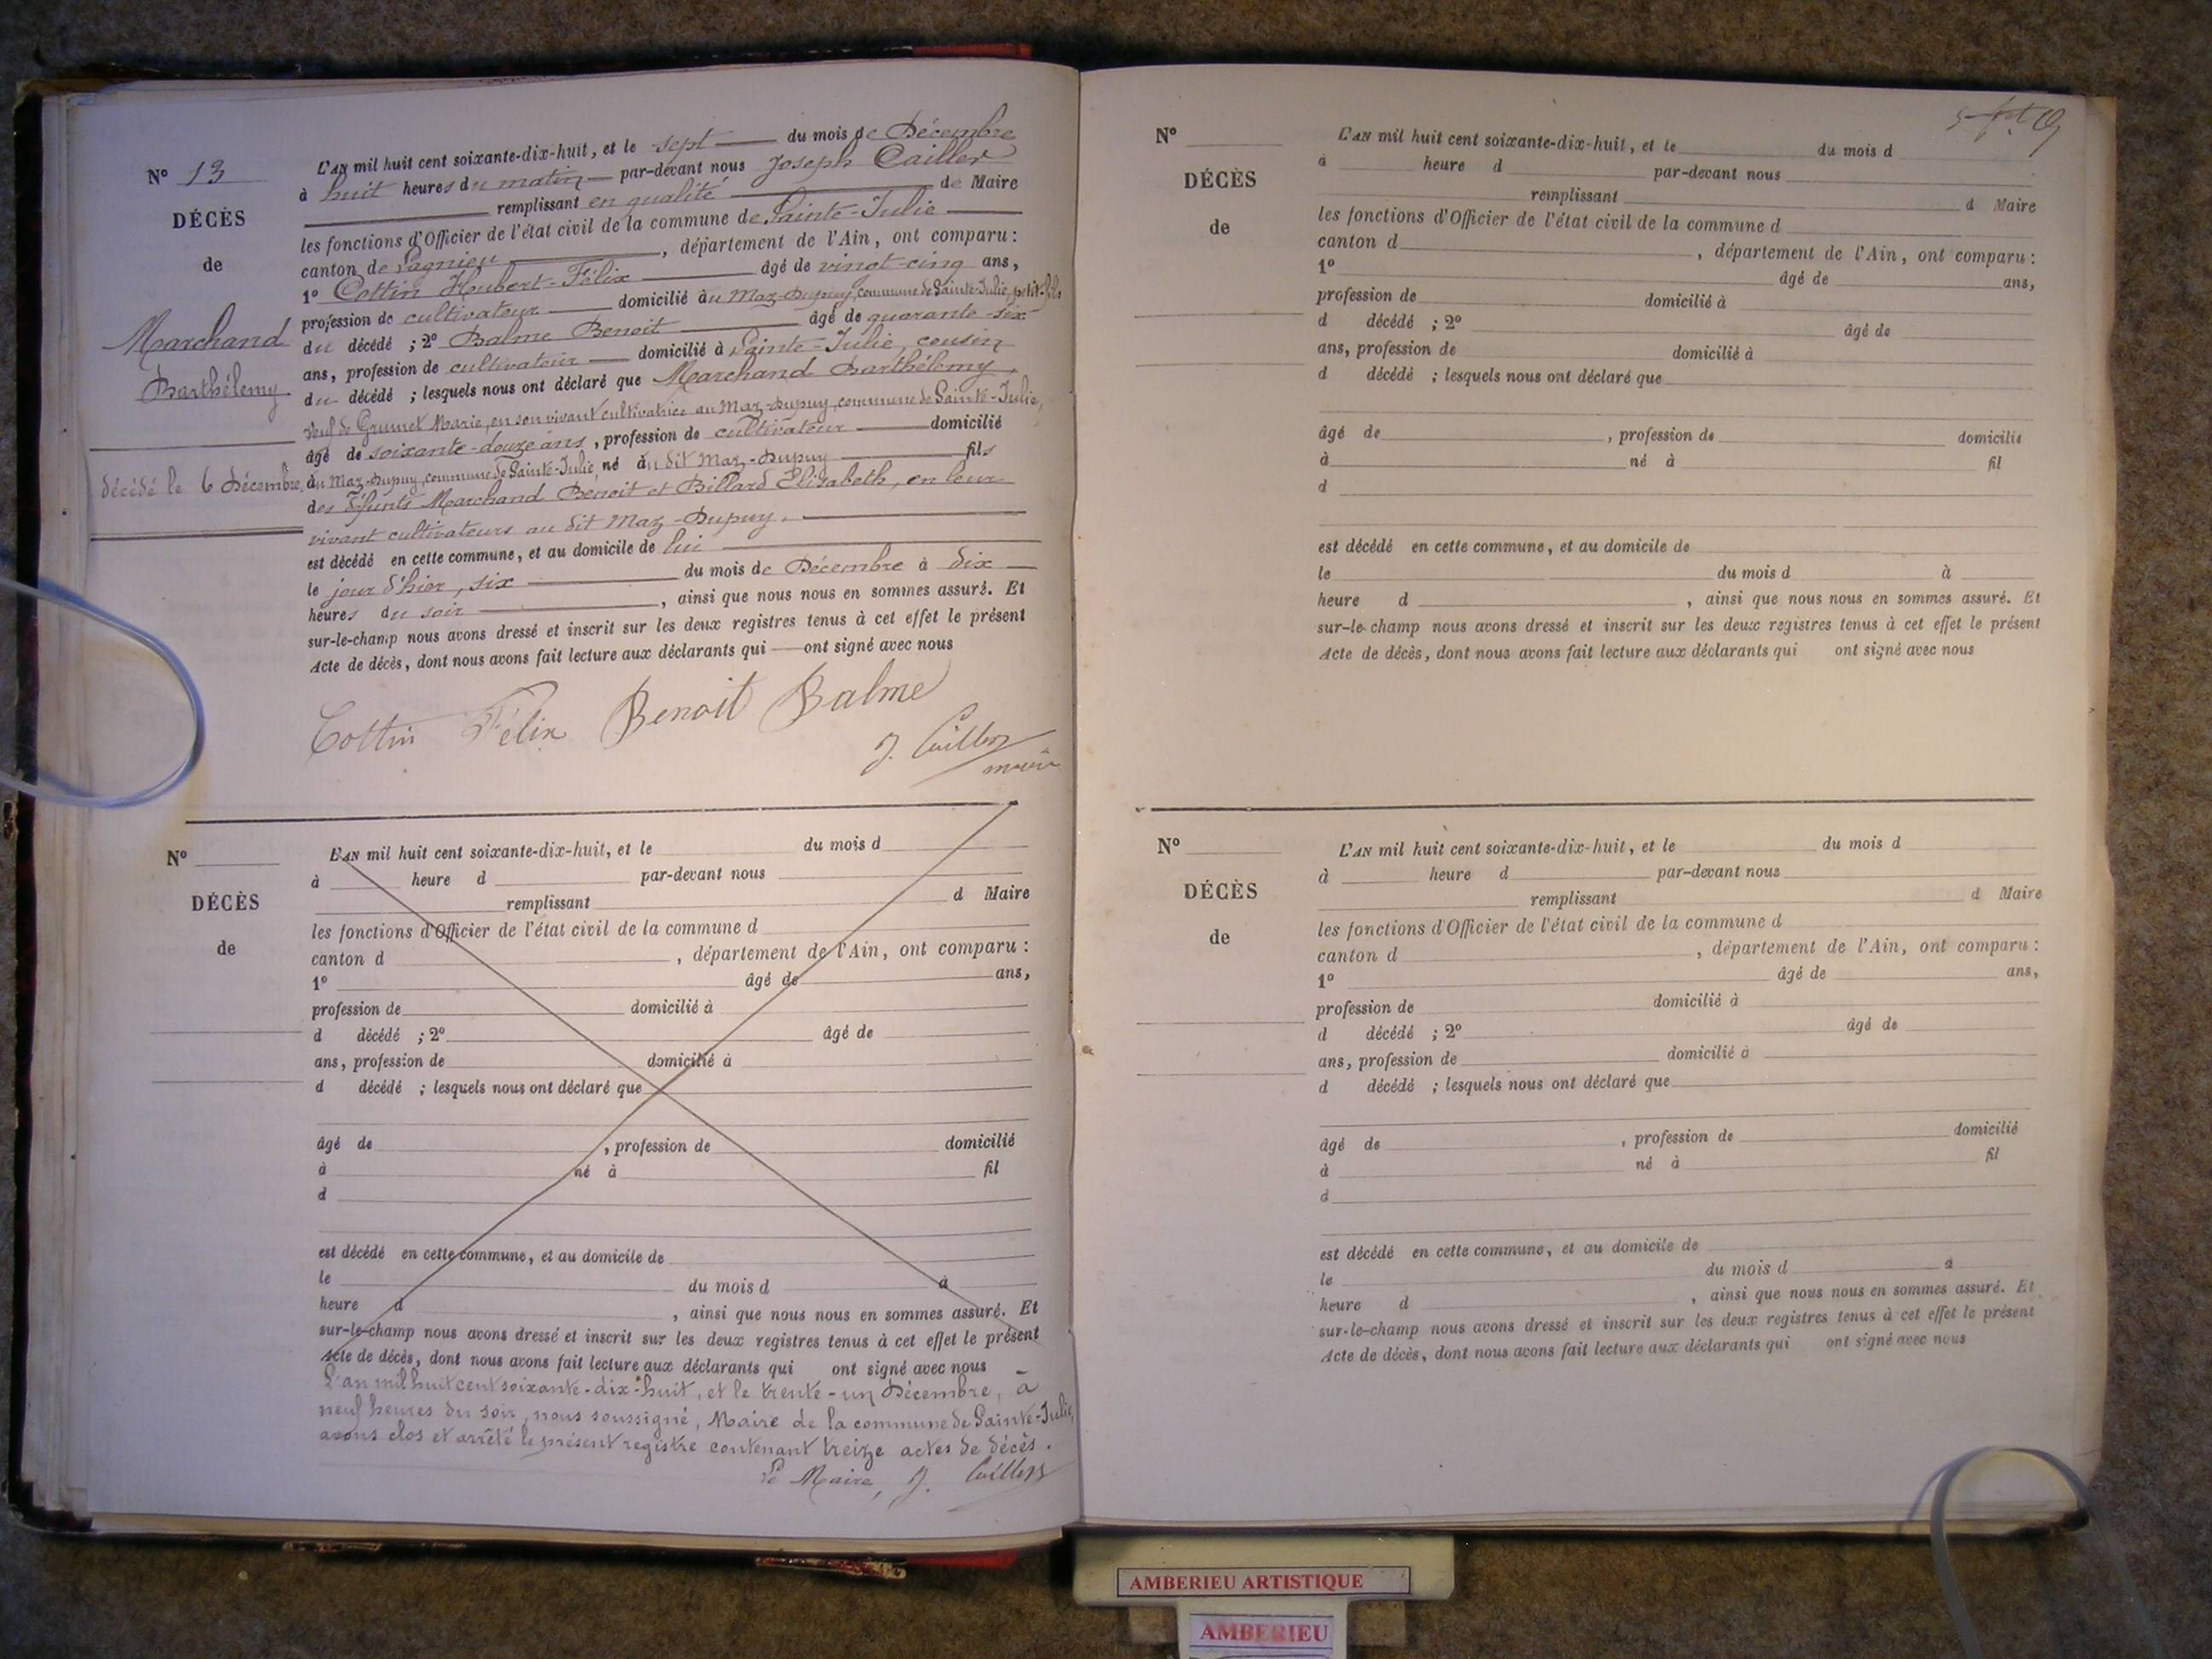 N° 13
DÉCÈS
de
Marchand
Barthélemy
décédé le 6 Décembre
L'AN mil huit cent soixante-dix-huit, et le sept du mois de Décembre
à huit heures du matin par-devant nous Joseph Cailler
remplissant en qualité de Maire
les fonctions d'Officier de l'état civil de la commune de Sainte-Julie
canton de Lagnieu, département de l'Ain, ont comparu :
1° Cottin Hubert-Félix âgé de vingt-cinq ans,
profession de cultivateur domicilié au Maz-Dupuy, commune de Sainte-Julie, petit-fils
du décédé ; 2° Balme Benoit âgé de quarante-six
ans, profession de cultivateur domicilié à Sainte-Julie, cousin
du décédé ; lesquels nous ont déclaré que Marchand Barthélemy,
veuf de Grumet Marie, en son vivant cultivatrice au Maz-Dupuy, commune de Sainte-Julie,
âgé de soixante-douze ans, profession de cultivateur domicilié
au Maz-Dupuy, commune de Sainte-Julie, né au dit Maz-Dupuy fils
des défunts Marchand Benoit et Billard Elisabeth, en leur
vivant cultivateurs au dit Maz-Dupuy.
est décédé en cette commune, et au domicile de lui
le jour d'hier, six du mois de Décembre à dix
heures du soir, ainsi que nous nous en sommes assuré. Et
sur-le-champ nous avons dressé et inscrit sur les deux registres tenus à cet effet le présent
Acte de décès, dont nous avons fait lecture aux déclarants qui ont signé avec nous
Cottin Félix Benoit Balme
J. Cailler
maire
N°
DÉCÈS
de
L'AN mil huit cent soixante-dix-huit, et le du mois d
à heure d par-devant nous
remplissant d Maire
les fonctions d'Officier de l'état civil de la commune d
canton d , département de l'Ain, ont comparu :
1° âgé de ans,
profession de domicilié à
d décédé ; 2° âgé de
ans, profession de domicilié à
d décédé ; lesquels nous ont déclaré que
âgé de , profession de domicilié
à né à fil
d
est décédé en cette commune, et au domicile de
le du mois d à
heure d , ainsi que nous nous en sommes assuré. Et
sur-le-champ nous avons dressé et inscrit sur les deux registres tenus à cet effet le présent
Acte de décès, dont nous avons fait lecture aux déclarants qui ont signé avec nous
L'an mil huit cent soixante-dix-huit, et le trente-un Décembre, à
neuf heures du soir, nous soussigné, Maire de la commune de Sainte-Julie,
avons clos et arrêté le présent registre contenant treize actes de décès.
Le Maire, J. Cailler
N°
DÉCÈS
de
L'AN mil huit cent soixante-dix-huit, et le du mois d
à heure d par-devant nous
remplissant d Maire
les fonctions d'Officier de l'état civil de la commune d
canton d , département de l'Ain, ont comparu :
1° âgé de ans,
profession de domicilié à
d décédé ; 2° âgé de
ans, profession de domicilié à
d décédé ; lesquels nous ont déclaré que
âgé de , profession de domicilié
à né à fil
d
est décédé en cette commune, et au domicile de
le du mois d à
heure d , ainsi que nous nous en sommes assuré. Et
sur-le-champ nous avons dressé et inscrit sur les deux registres tenus à cet effet le présent
Acte de décès, dont nous avons fait lecture aux déclarants qui ont signé avec nous
N°
DÉCÈS
de
L'AN mil huit cent soixante-dix-huit, et le du mois d
à heure d par-devant nous
remplissant d Maire
les fonctions d'Officier de l'état civil de la commune d
canton d , département de l'Ain, ont comparu :
1° âgé de ans,
profession de domicilié à
d décédé ; 2° âgé de
ans, profession de domicilié à
d décédé ; lesquels nous ont déclaré que
âgé de , profession de domicilié
à né à fil
d
est décédé en cette commune, et au domicile de
le du mois d à
heure d , ainsi que nous nous en sommes assuré. Et
sur-le-champ nous avons dressé et inscrit sur les deux registres tenus à cet effet le présent
Acte de décès, dont nous avons fait lecture aux déclarants qui ont signé avec nous
AMBERIEU ARTISTIQUE
AMBERIEU